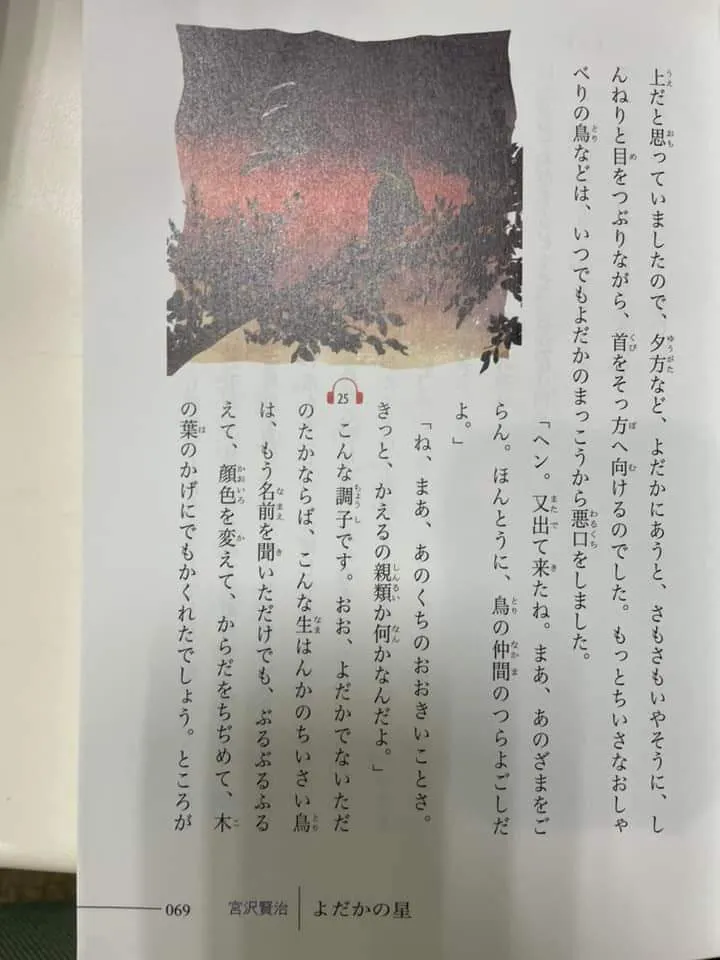 上だと思っていましたので、夕方など、よだかにあうと、さもさもいやそうに、し
んねりと目をつぶりながら、首をそっ方へ向けるのでした。もっとちいさなおしゃ
べりの鳥などは、いつでもよだかのまっこうから悪口をしました。
「ヘン。又出て来たね。まあ、あのざまをご
らん。ほんとうに、鳥の仲間のつらよごしだ
よ。」
「ね、まあ、あのくちのおおきいことさ。
きっと、かえるの親類か何かなんだよ。」
25
こんな調子です。おお、よだかでないただ
のたかならば、こんな生はんかのちいさい鳥
は、もう名前を聞いただけでも、ぶるぶるふる
えて、顔色を変えて、からだをちぢめて、木
の葉のかげにでもかくれたでしょう。ところが
069 宮沢賢治 よだかの星